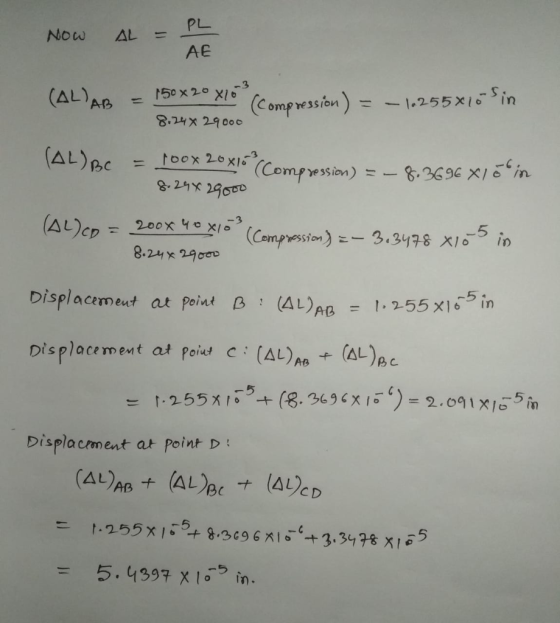 Now ΔL = PL / AE
(ΔL)AB = 150×20×10^-3 / 8.24×29000 (Compression) = -1.255×10^-5 in
(ΔL)BC = 100×20×10^-3 / 8.24×29000 (Compression) = -8.3696×10^-6 in
(ΔL)CD = 200×40×10^-3 / 8.24×29000 (Compression) = -3.3478×10^-5 in
Displacement at point B : (ΔL)AB = 1.255×10^-5 in
Displacement at point C : (ΔL)AB + (ΔL)BC
= 1.255×10^-5 + (8.3696×10^-6) = 2.091×10^-5 in
Displacement at point D :
(ΔL)AB + (ΔL)BC + (ΔL)CD
= 1.255×10^-5 + 8.3696×10^-6 + 3.3478×10^-5
= 5.4397×10^-5 in.